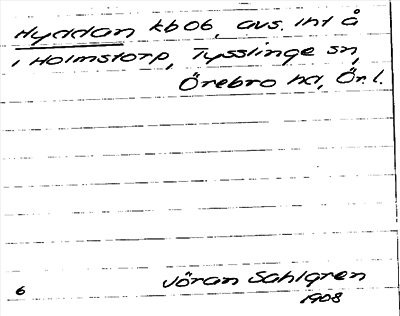 Hyddan kb 06, avs. lht å
i Holmstorp, Tysslinge sn,
Örebro hd, Ör. l.
6 Jöran Sahlgren
1908